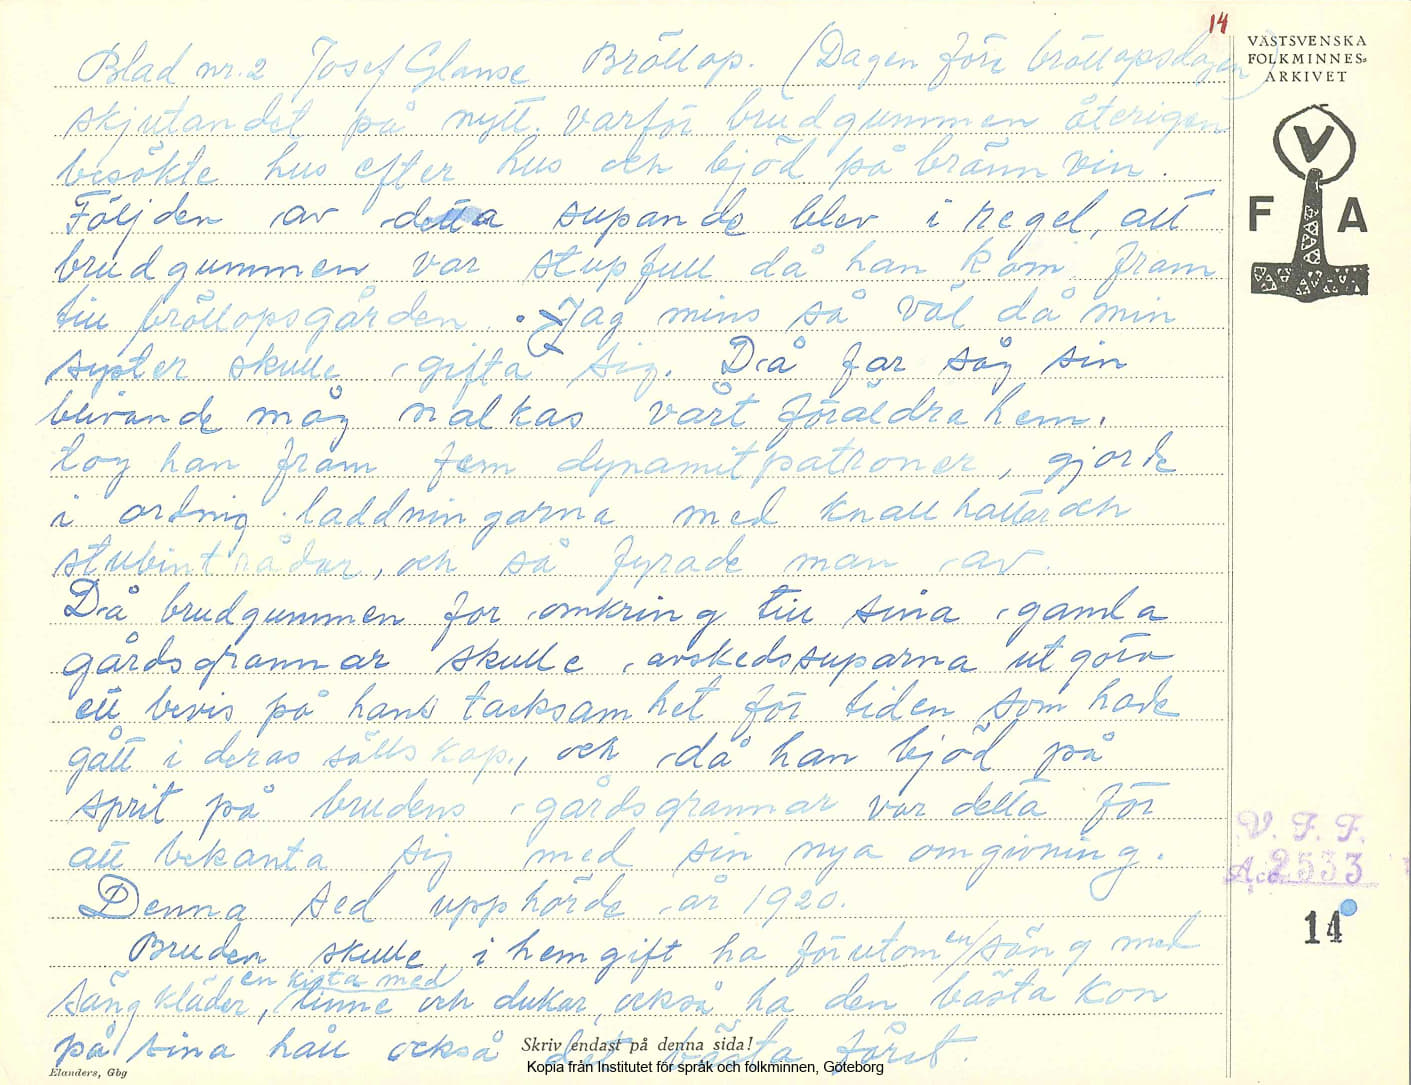 14
VÄSTSVENSKA
FOLKMINNES-
ARKIVET
V
F A
Blad nr. 2 Josef Glanse Bröllop. (Dagen före bröllopsdagen)
skjutandet på nytt. varför brudgummen återigen
besökte hus efter hus och bjöd på brännvin.
Följden av detta supande blev i regel, att
brudgummen var stupfull då han kom fram
till bröllopsgården. Jag mins så väl då min
syster skulle gifta sig. Då far såg sin
blivande måg nalkas vårt föräldrahem.
tog han fram fem dynamitpatroner, gjorde
i ordnig laddningarna med knallhattar och
stubintrådar, och så fyrade man av.
Då brudgummen for omkring till sina gamla
gårdsgrannar skulle avskedssuparna utgöra
ett bevis på hans tacksamhet för tiden som hade
gått i deras sällskap., och då han bjöd på
sprit på brudens gårdsgrannar var detta för
att bekanta sig med sin nya omgivning.
Denna sed upphörde år 1920.
Bruden skulle i hemgift ha förutom en säng med
sängkläder, en kista med linne och dukar, också ha den bästa kon
på sina håll också det bästa fåret.
V. F. F.
Acc. 2533
14
Skriv endast på denna sida!
Elanders, Gbg
Kopia från Institutet för språk och folkminnen, Göteborg